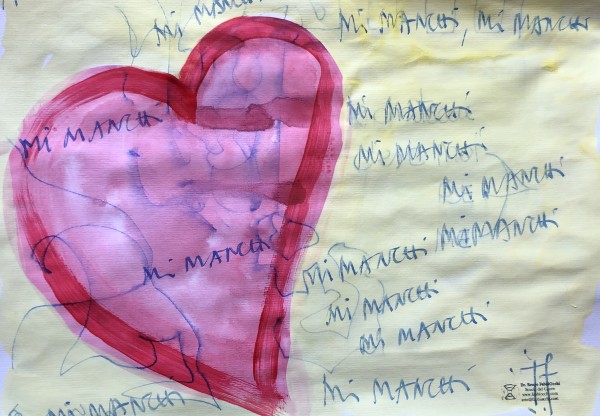 Mi MANCHi
Mi MANCHi, Mi MANCHi
Mi MANCHi
Mi MANCHi
Mi MANCHi
Mi MANCHi
Mi MANCHi
Mi MANCHi
Mi MANCHi
Mi MANCHi
Mi MANCHi
Mi MANCHi
Mi MANCHi